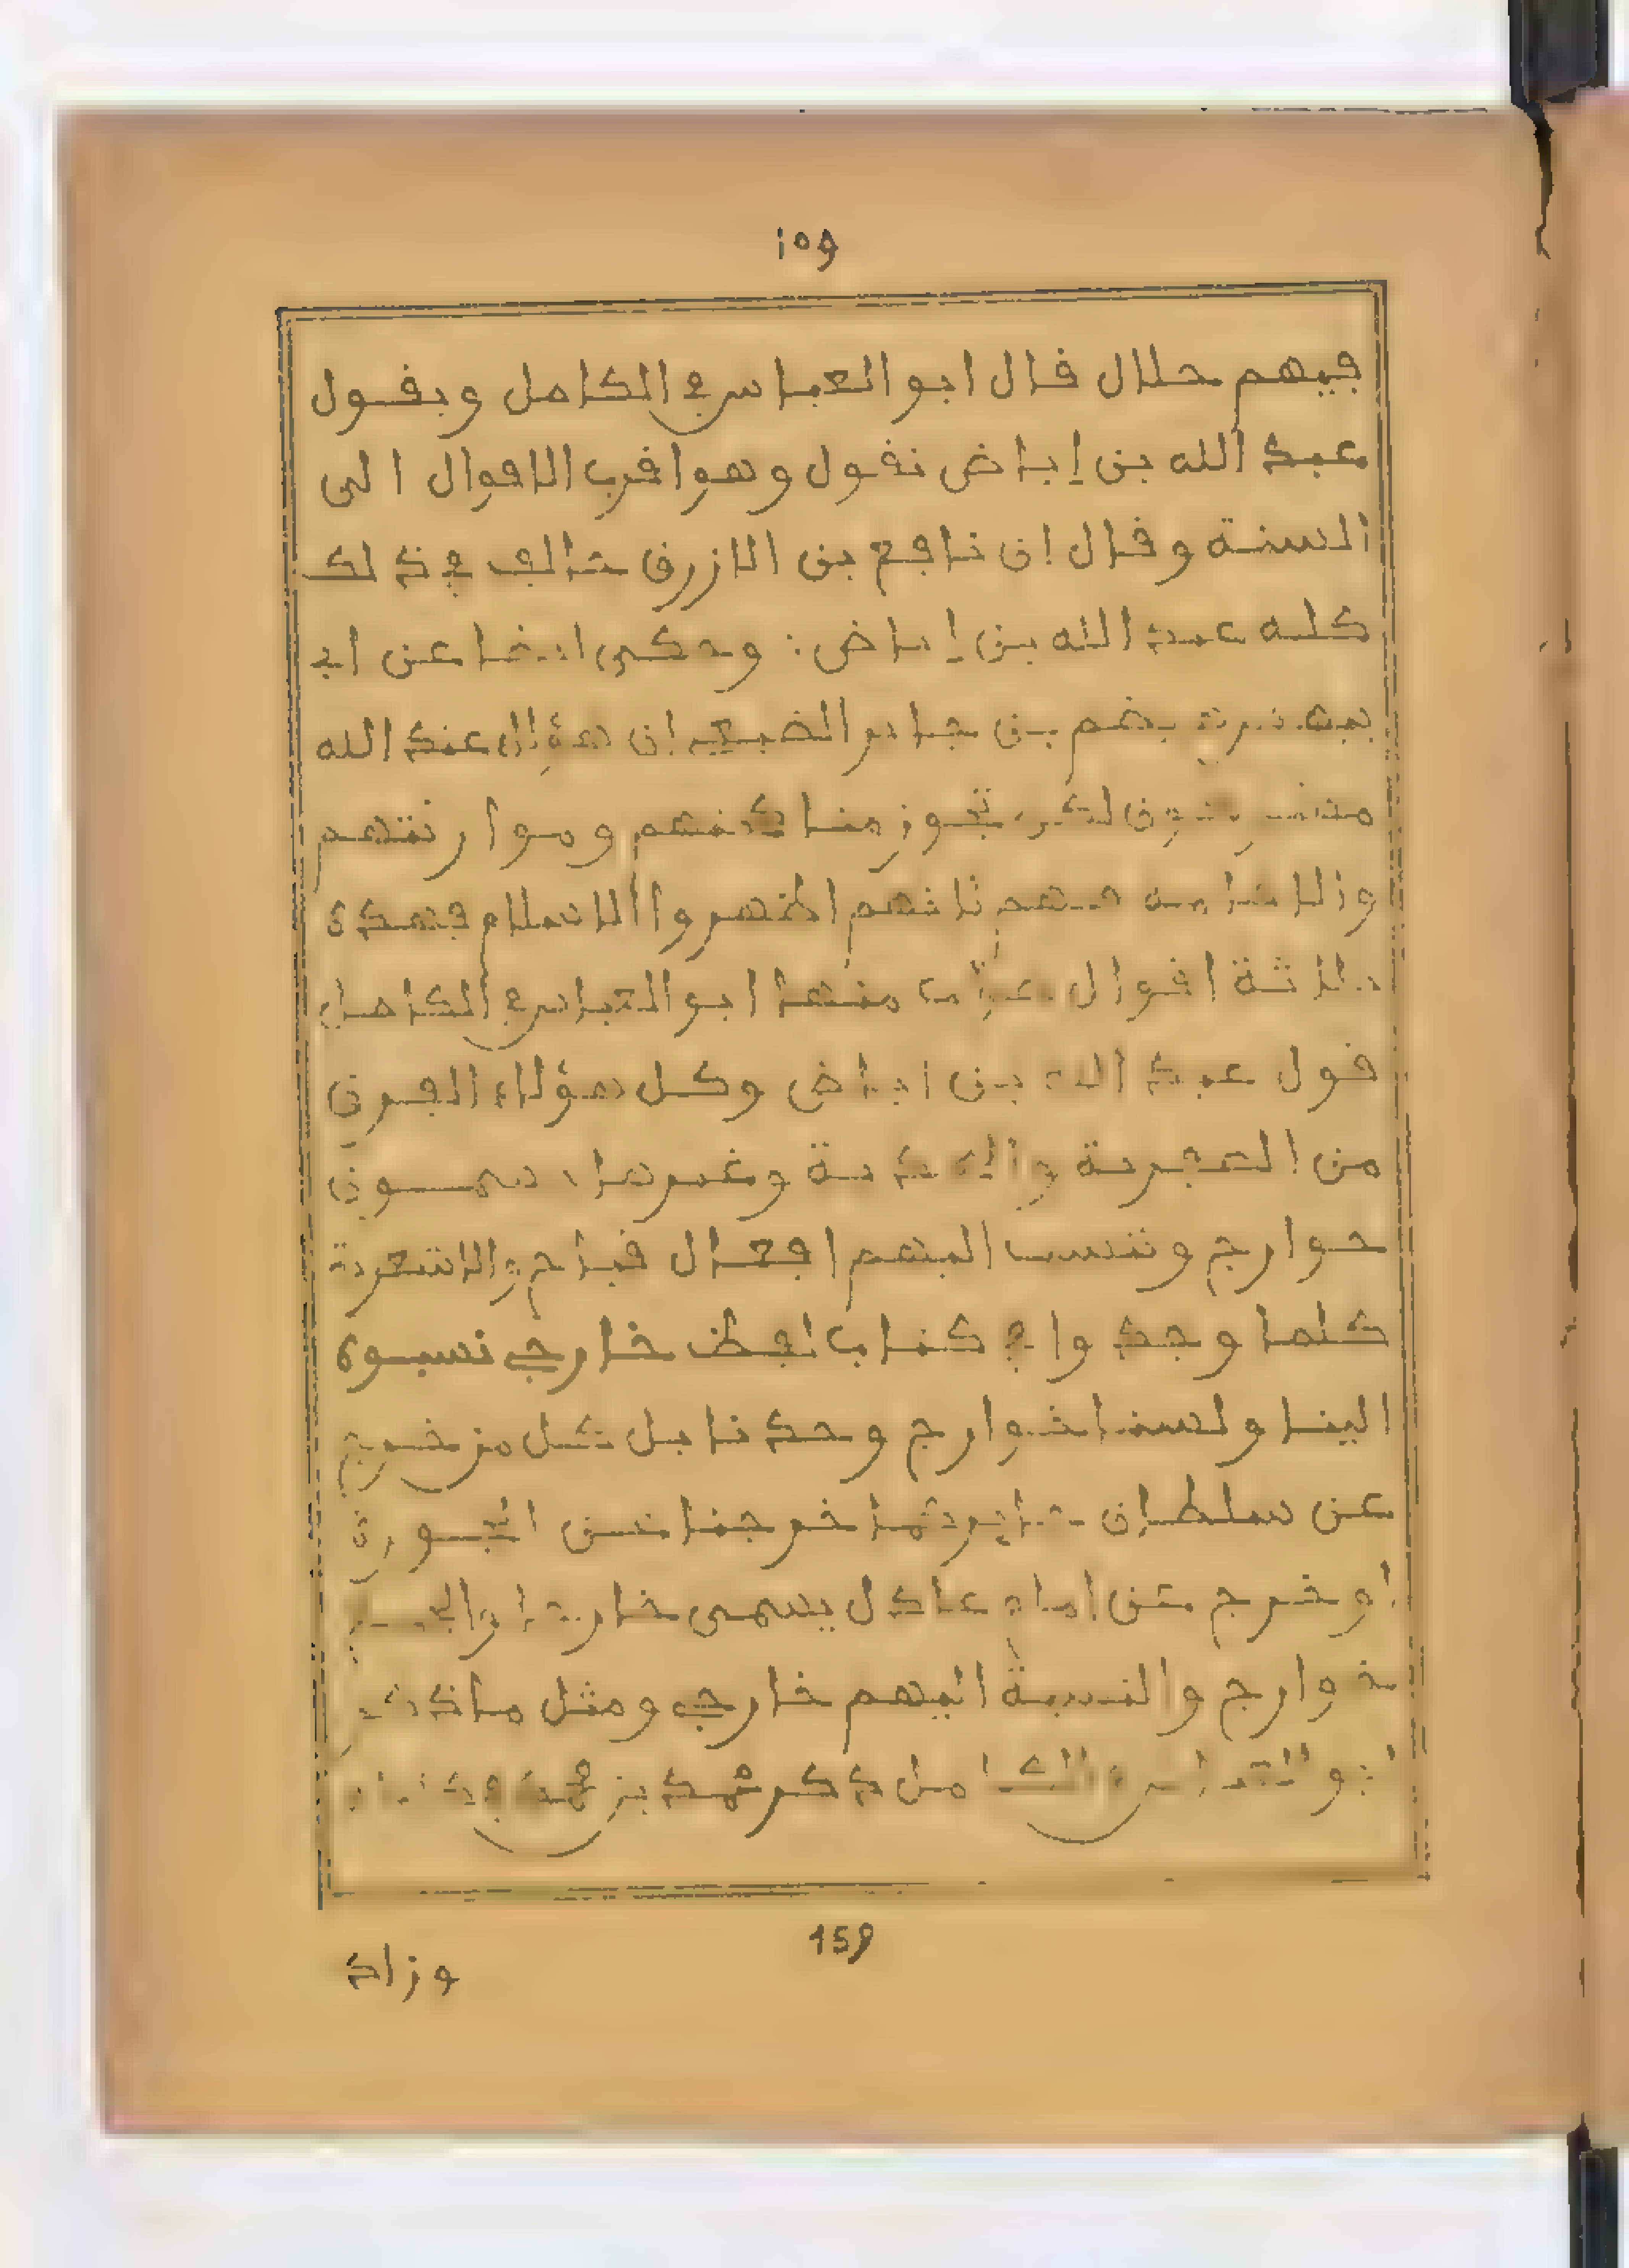 ١٥٩
فيهم حلال قال ابو العباس في الكامل وبقول
عبد الله بن إباض نقول وهو اقرب الاقوال الى
السنة وقال ان نافع بن الازرق خالف في ذلك
كله عبد الله بن إباض : وحكى ايضا عن ابي
بن جابر الضبعي ان هؤلاء عند الله
تجوز مناكحتهم وموارثتهم
منهم لانهم اظهروا الاسلام فهذه
ثلاثة اقوال منها ابو العباس في الكامل
قول عبد الله بن اباض وكل هؤلاء الفرق
من وغيرها يسمون
خوارج وتنسب اليهم افعال قباح والاشعرية
كلما وجدوا في كتاب لفظ خارجي نسبوه
الينا ولسنا خوارج وحدنا بل كل من خرج
عن سلطان خرجنا عن الجورة
او خرج عن امام عادل يسمى
خوارج والنسبة اليهم خارجي ومثل ما ذكر
ابو العباس في الكامل ذكر محمد بن
159
وزاد